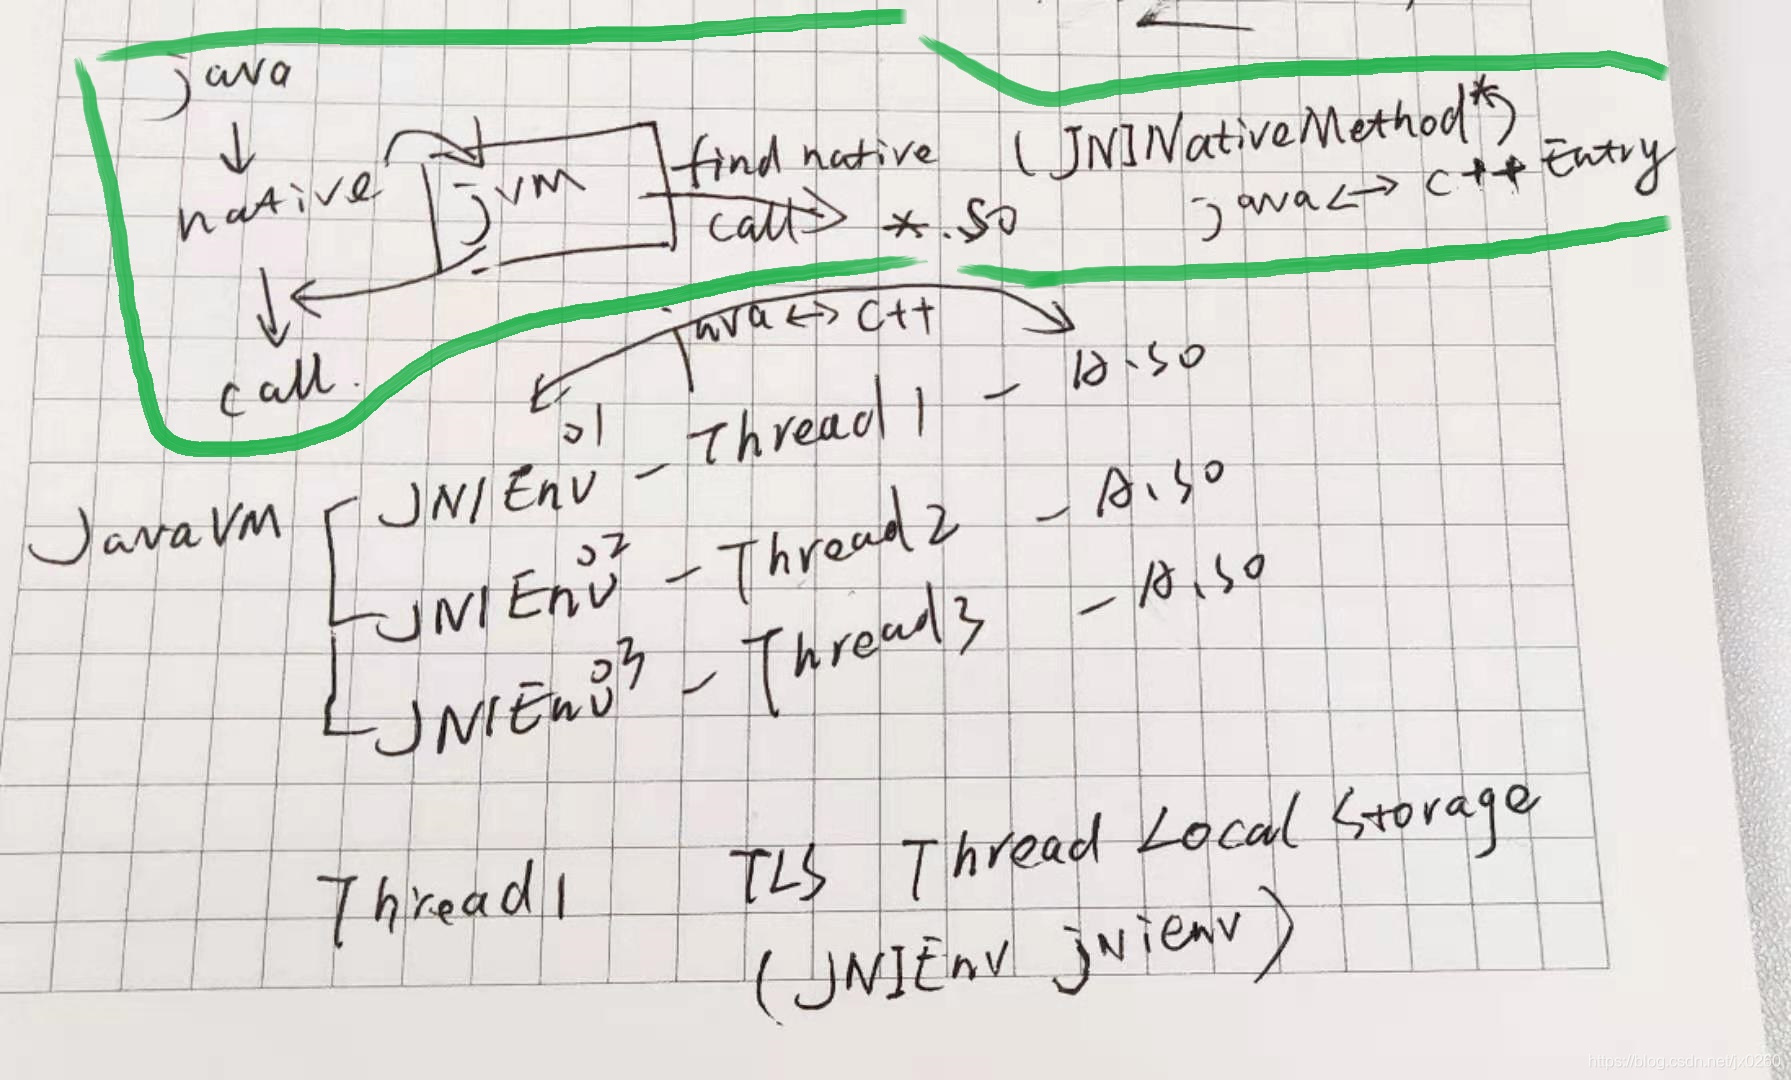 java
native
jvm
find native
call
*.so
(JNINativeMethod*)
java<->C++ Entry
call.
java <-> C++
JavaVM
JNIEnv 01 - Thread1 - A.so
JNIEnv 02 - Thread2 - A.so
JNIEnv 03 - Thread3 - A.so
Thread1
TLS Thread Local Storage
(JNIEnv jnienv)